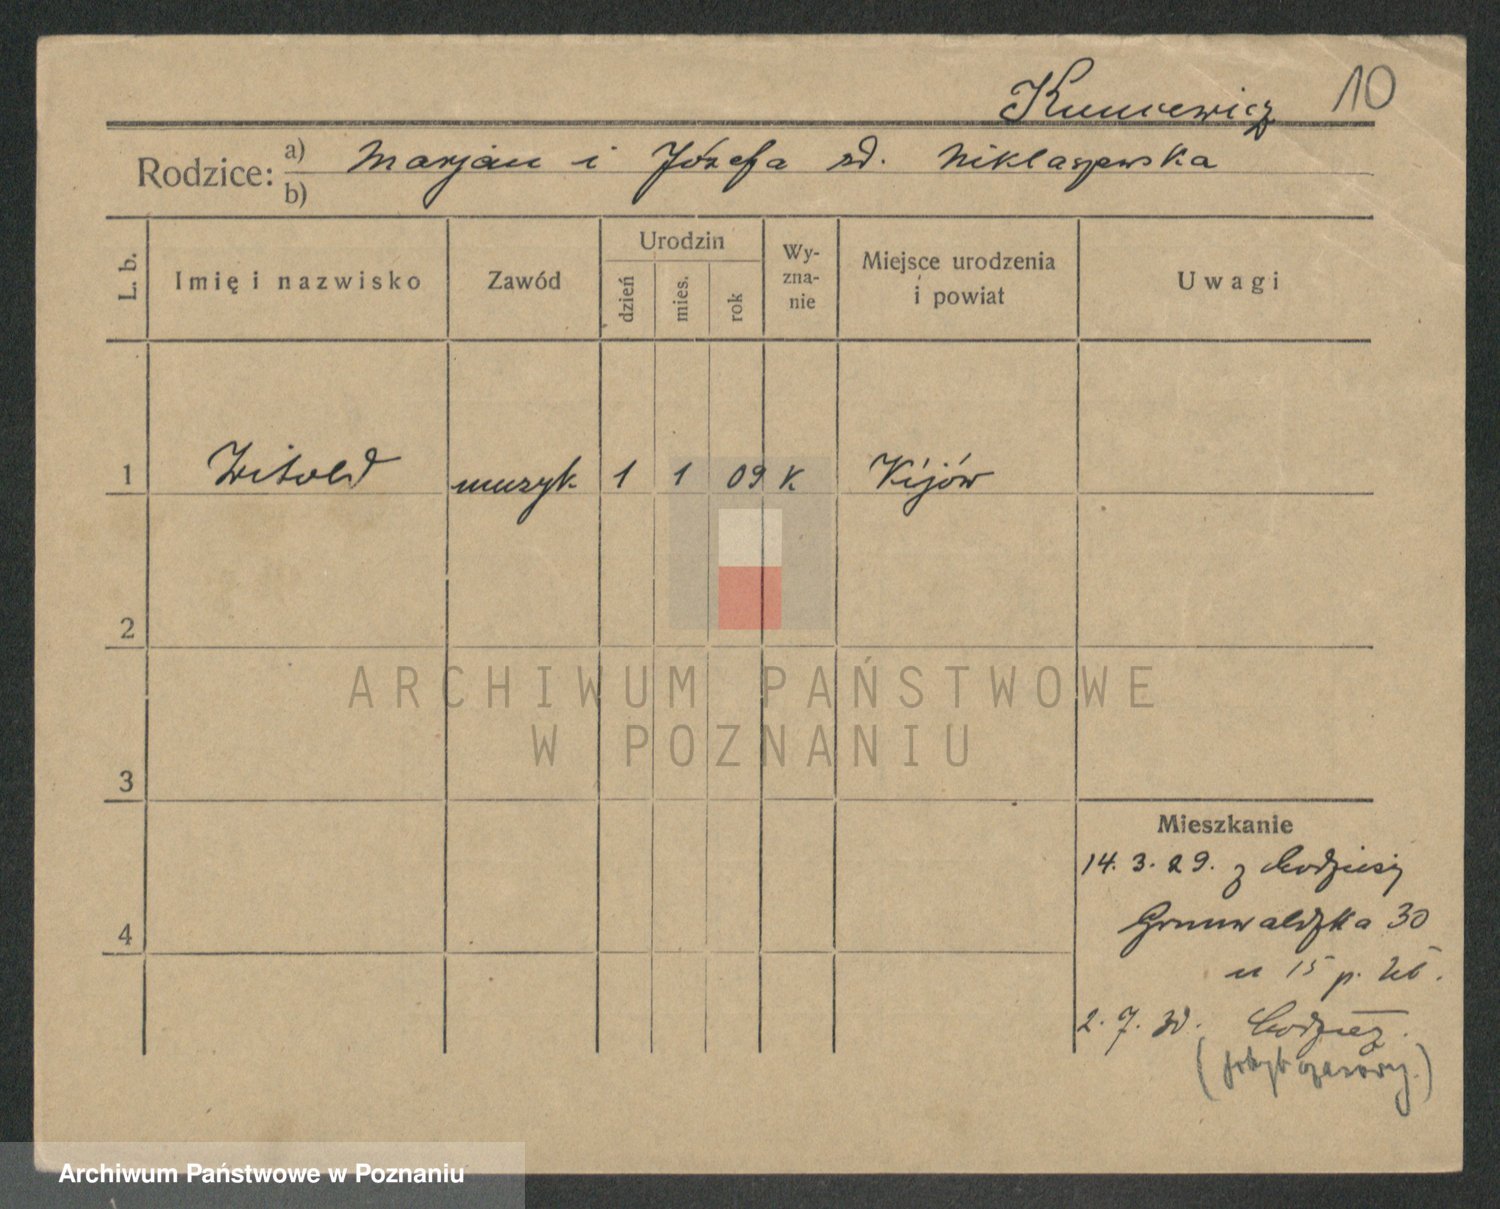 Kuncewicz 10
Rodzice: a) Marjan i Józefa zd. Niklaszewska
b)
L. b. Imię i nazwisko Zawód Urodzin dzień mies. rok Wy-zna-nie Miejsce urodzenia i powiat Uwagi
1 Witold muzyk 1 1 09 K Kijów
2
ARCHIWUM PAŃSTWOWE
W POZNANIU
3
Mieszkanie
14. 3. 29. z Chodzieży
4 Grunwaldzka 30
u 15 p.
2. 7. 30. Chodzież.
Archiwum Państwowe w Poznaniu